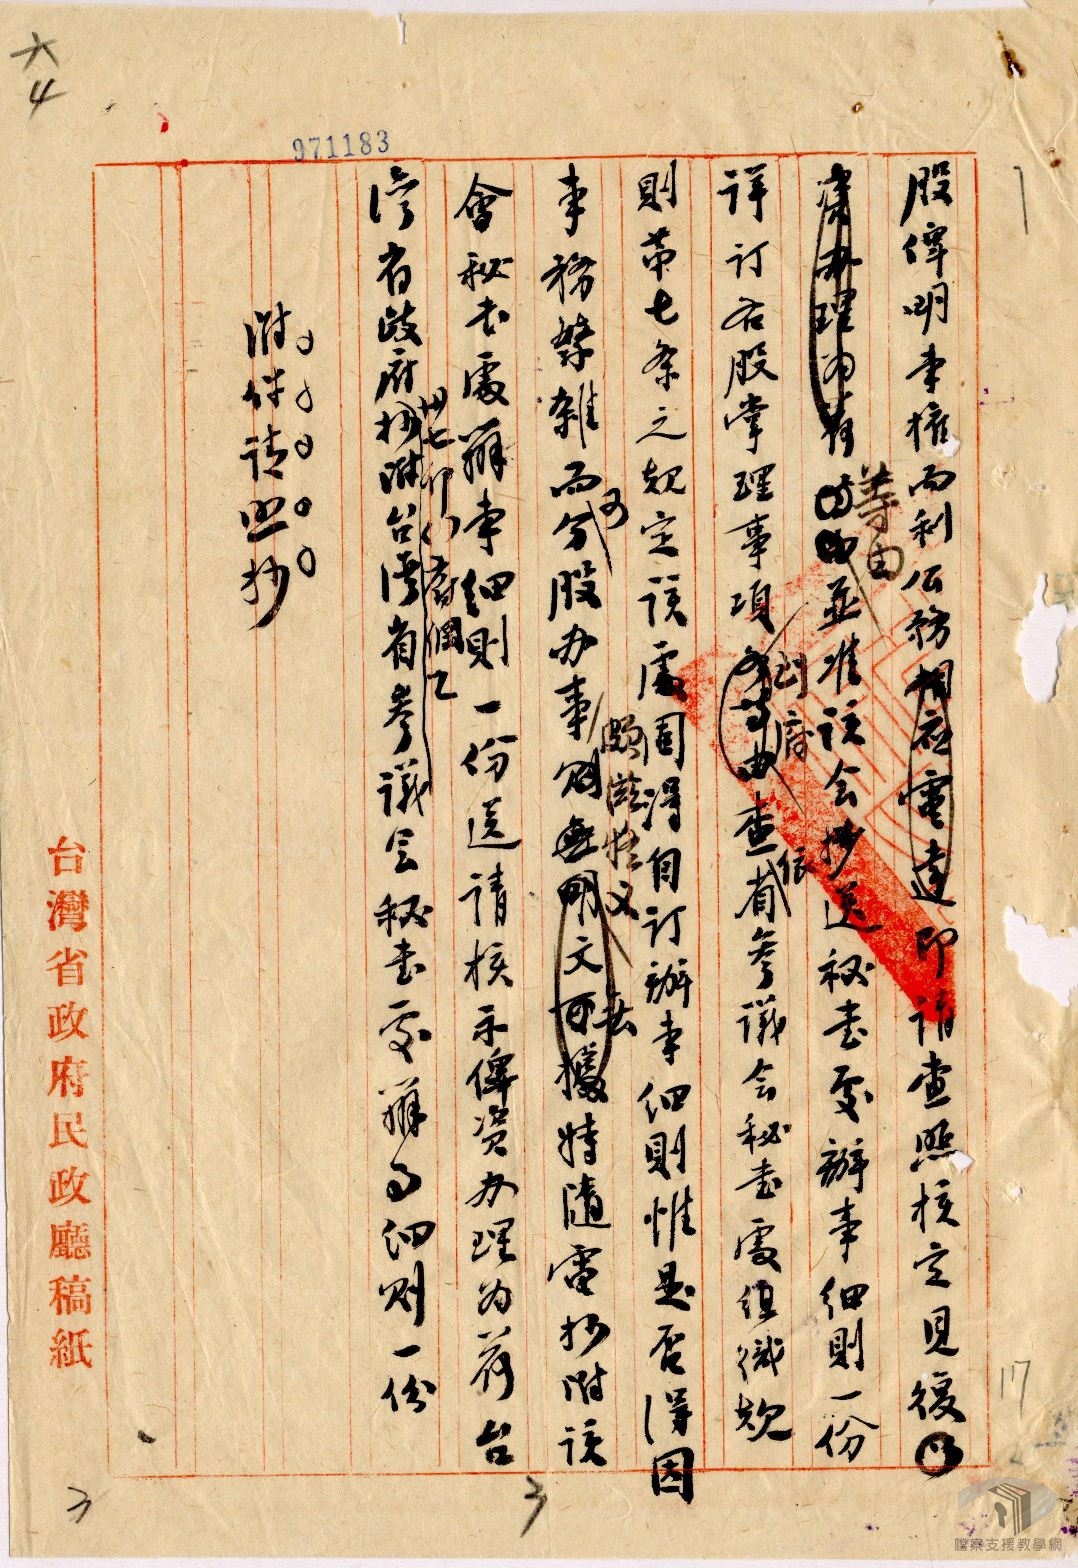 六
4
971183
股俾明事權而利公務相應電達即請查照核定見復
肅辦理為荷等由並准該会抄送秘書處辦事細則一份
詳訂各股掌理事項
到府
查省參議会秘書處組織規
依
則第七条之規定該處固得自訂辦事細則惟是否得因
事務繁雜而分股办事
頗滋疑义
則無明文可據特隨電抄附該
會秘書處辦事細則一份送請核示俾資办理為荷台
灣省政府
抄附台灣省參議会秘書處辦事细则一份
附件請照抄
台灣省政府民政廳稿紙
17
3
3
檔案支援教學網